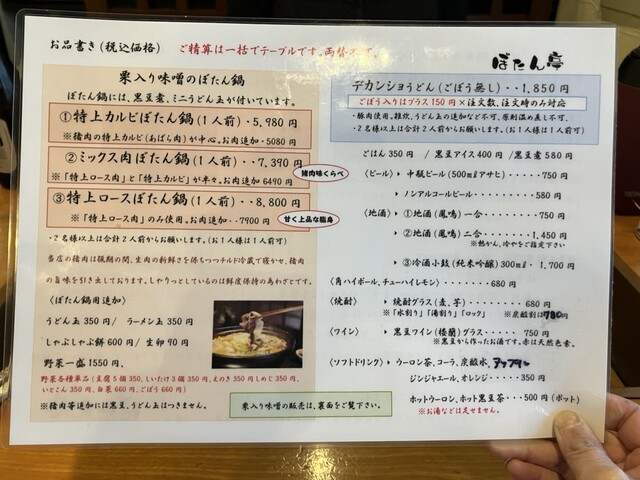 お品書き(税込価格)
ご精算は一括でテーブルです。両替
ぼたん亭
栗入り味噌のぼたん鍋
ぼたん鍋には、黒豆煮、ミニうどん玉が付いています。
①特上カルビぼたん鍋(1人前)・5,980円
※猪肉の特上カルビ(あばら肉)が中心。お肉追加・5080
②ミックス肉ぼたん鍋(1人前)・・7,390円
※「特上ロース肉」と「特上カルビ」が半々。お肉追加6490円
猪肉味くらべ
③特上ロースぼたん鍋(1人前)・・8,800円
※「特上ロース肉」のみ使用。お肉追加・・7900円
甘く上品な脂身
・2名様以上は合計2人前からお願いします。(お1人様は1人前可)
当店の猪肉は
の旨味を引き出しております。しゃりっとしているのは鮮度保持の為わざとです。
〈ぼたん鍋用追加〉
うどん玉350円/ ラーメン玉350円
しゃぶしゃぶ餅600円/ 生卵90円
野菜一盛1550円、
野菜各種単品(豆腐5個350、しいたけ3個350円、えのき350円しめじ350円、
いとこん350円、白菜660円、ごぼう660円)
※猪肉等追加には黒豆、うどん玉はつきません。
栗入り味噌の販売は、裏面をご覧下さい。
デカンショうどん(ごぼう無し)・・1,850円
ごぼう入りはプラス150円×注文数、注文時のみ対応
・豚肉使用。雑炊、うどん玉の追加など不可、原則温め直し不可、
・2名様以上は合計2人前からお願いします。(お1人様は1人前可)
ごはん350円 /黒豆アイス400円 /黒豆煮580円
〈ビール〉▸ 中瓶ビール(500㎖アサヒ)・・・・・750円
▸ ノンアルコールビール・・・・・・・・580円
〈地酒〉▸ ①地酒(鳳鳴)一合・・・・・・・・750円
▸ ②地酒(鳳鳴)二合・・・・・・・1,450円
※熱かん、冷やをご指定下さい
▸ ③冷酒小鼓(純米吟醸)300㎖・1,700円
〈角ハイボール、チューハイレモン〉・・・・・・・680円
〈焼酎〉▸ 焼酎グラス(麦、芋)・・・・・・・・680円
※「水割り」「湯割り」「ロック」 ※炭酸割は780円
〈ワイン〉▸ 黒豆ワイン(楼蘭)グラス・・・・・750円
※黒豆から作ったお酒です。赤は天然色素。
〈ソフトドリンク〉▸ ウーロン茶、コーラ、炭酸水、アップル
ジンジャエール、オレンジ・・・・・350円
ホットウーロン、ホット黒豆茶・・・500円(ポット)
※お湯などは足せません。